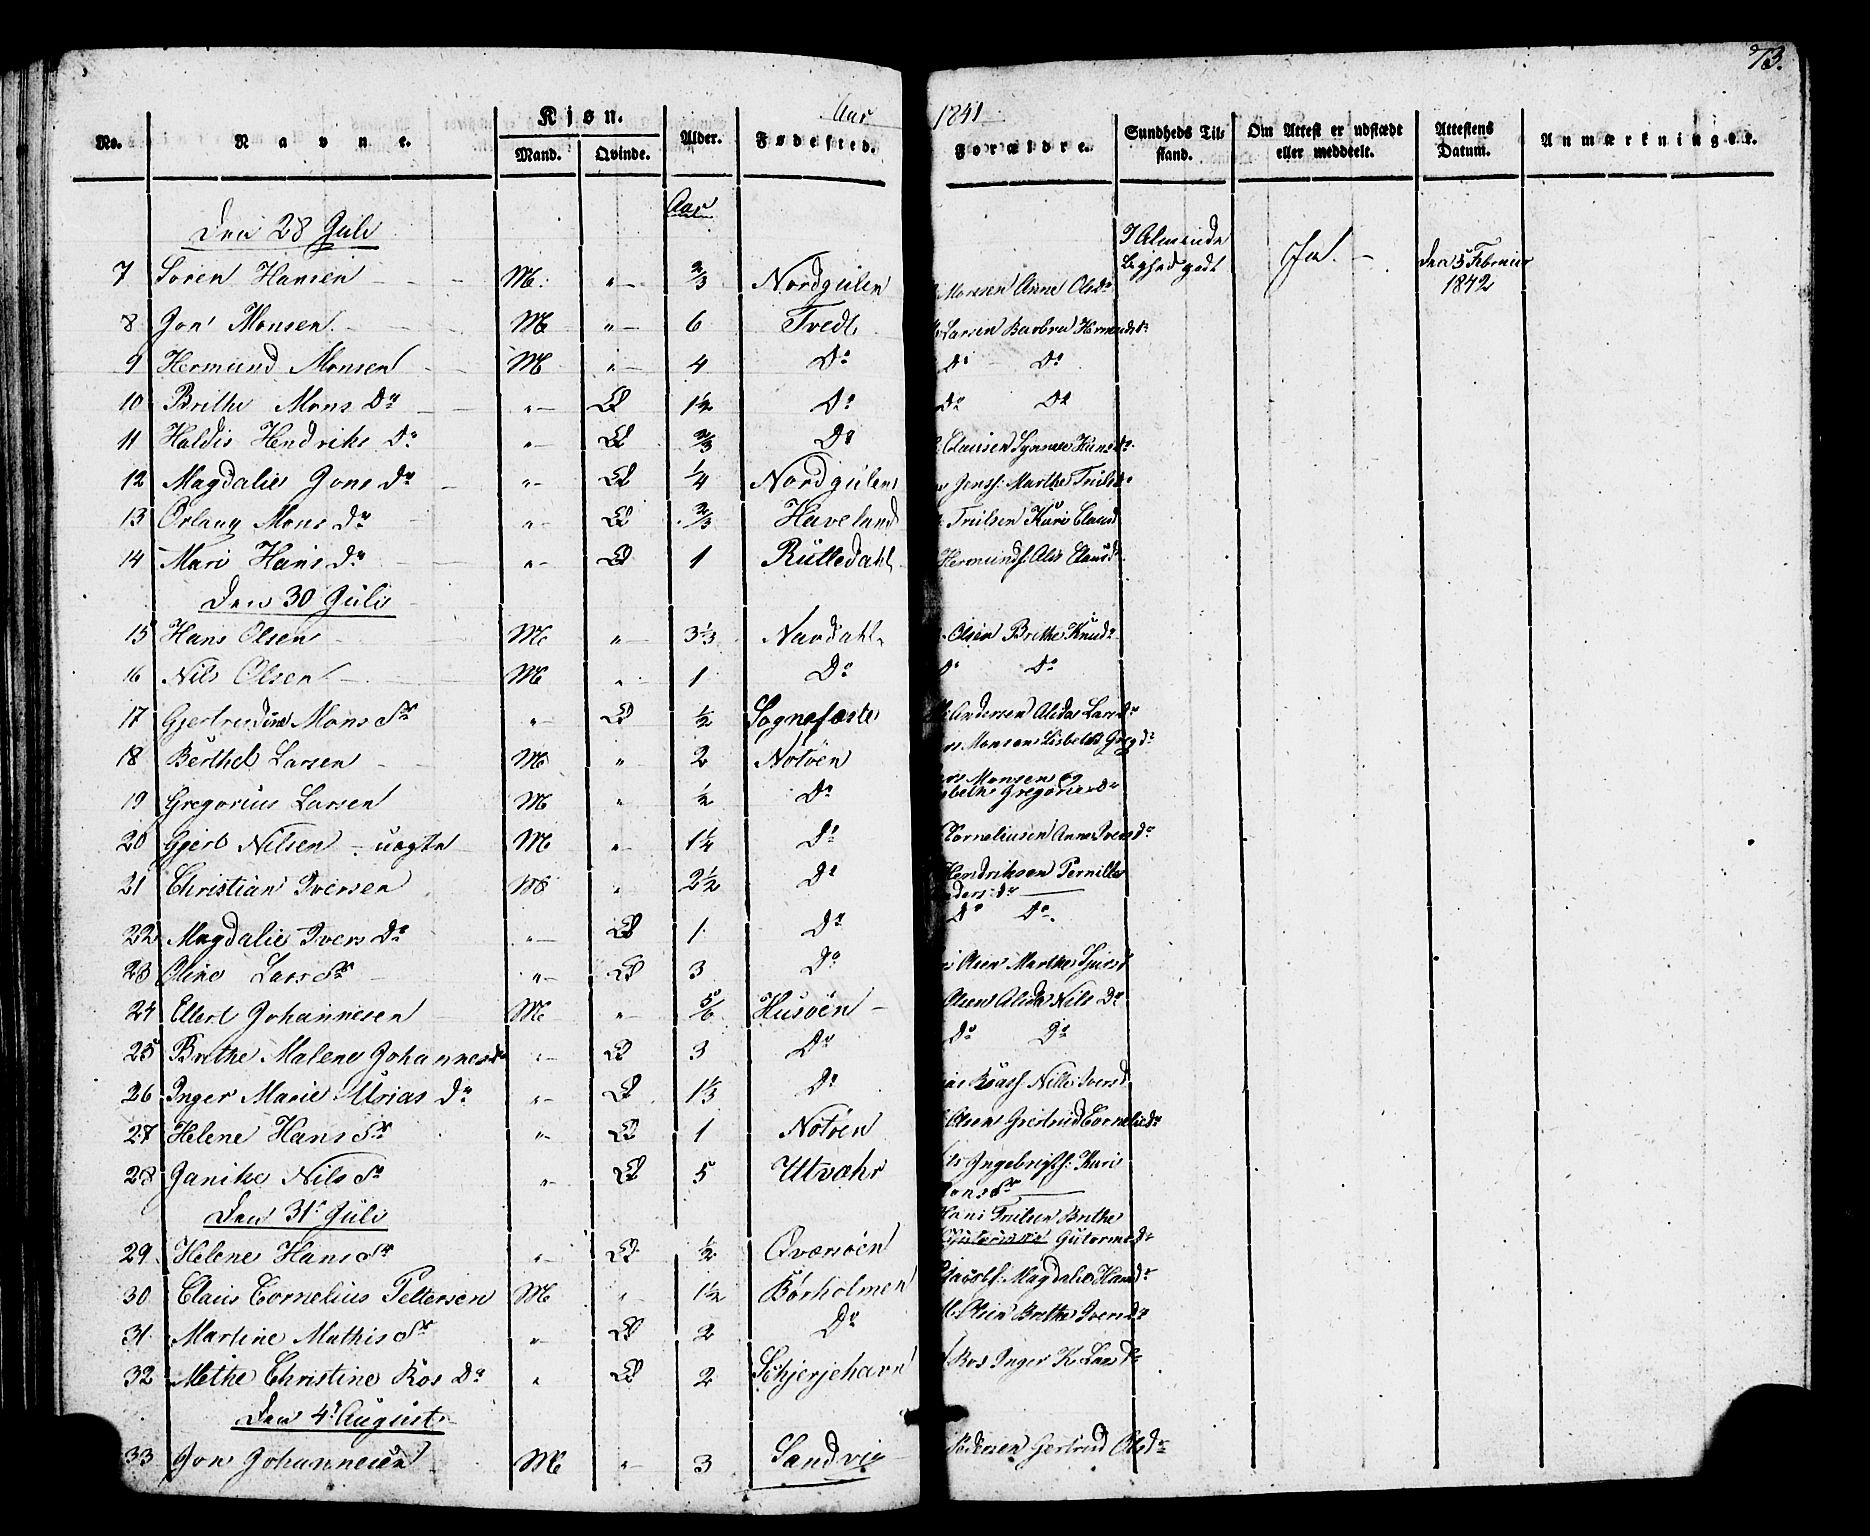 73.
Aar 1841
No. Navne. Kjøn. Mand. Qvinde. Alder. Fødested. Forældre. Sundheds Tilstand. Om Attest er udstædt eller meddeelt. Attestens Datum. Anmærkninger.
Aar
Den 28 Juli
I Almindelighed godt Ja. - den 5 Februar 1842
7 Søren Hansen M. " 2/3 Nordgulen Monsen Anne Olsdr
8 Jon Monsen M " 6 Tvedt Larsen Barbra Hermundsdr
9 Hermund Monsen M " 4 Do Do Do
10 Brithe Mons Dr " Q 1½ Do Do Do
11 Haldis Hendriks Dr " Q 2/3 Do Clausen Synneve Hansdr
12 Magdalie Jons Dr " Q ¼ Nordgulen Jonss: Marthe Trulsdr
13 Orlaug Mons Dr " Q 2/3 Haveland Trulsen Kari Clausd
14 Mari Hans Dr " Q 1 Rutledahl Hermunds: Alis Clausdr
Den 30 Juli
15 Hans Olsen M " 3⅓ Navdahl Olsen Brithe Knudsdr
16 Nils Olsen M " 1 Do Do Do
17 Gjertrudine Mons Dr " Q ½ Sognefæste Andersen Alida Larsdr
18 Berthel Larsen M " 2 Notøen Monsens Lisbeth Gregdr
19 Gregorius Larsen M " ½ Do Monsen og Gregoriusdr
20 Gjert Nilsen - uægte M " 1¼ Do Corneliusen Anne Iversdr
21 Christian Iversen M " 2½ Do Hendriksen Pernille Anders: dr
22 Magdalie Ivers Dr " Q 1 Do Do Do
23 Oline Lars Dr " Q 3 Do Olsen Marthe
24 Ellert Johannesen M " 5/6 Husøen Olsen Alida Nils Dr
25 Brithe Malene Johannesdr " Q 3 Do Do Do
26 Inger Marie Urias Dr " Q 1⅓ Do Nille Iversd
27 Helene Hans Dr " Q 1 Notøen Olsen Giertrud Corneliedr
28 Janike Nils Dr " Q 5 Utvæhr Ingebrigts: Kari Hans Dr
Den 31t Juli
29 Helene Hans Dr " Q ½ Qværnøen Hans Trulsen Brithe Gutormsdr
30 Claus Cornelius Pettersen M " 1½ Børholmen Magdalie Hansdr
31 Martine Mathis Dr " Q 2 Do Olsen Brithe Iversdr
32 Methe Christine Ros Dr " Q 2 Schjerjehavn Ros Inger K. Larsdr
Den 4t August
33 Jon Johannesen M " 3 Sandvig Pedersen Gertrud Olsdr